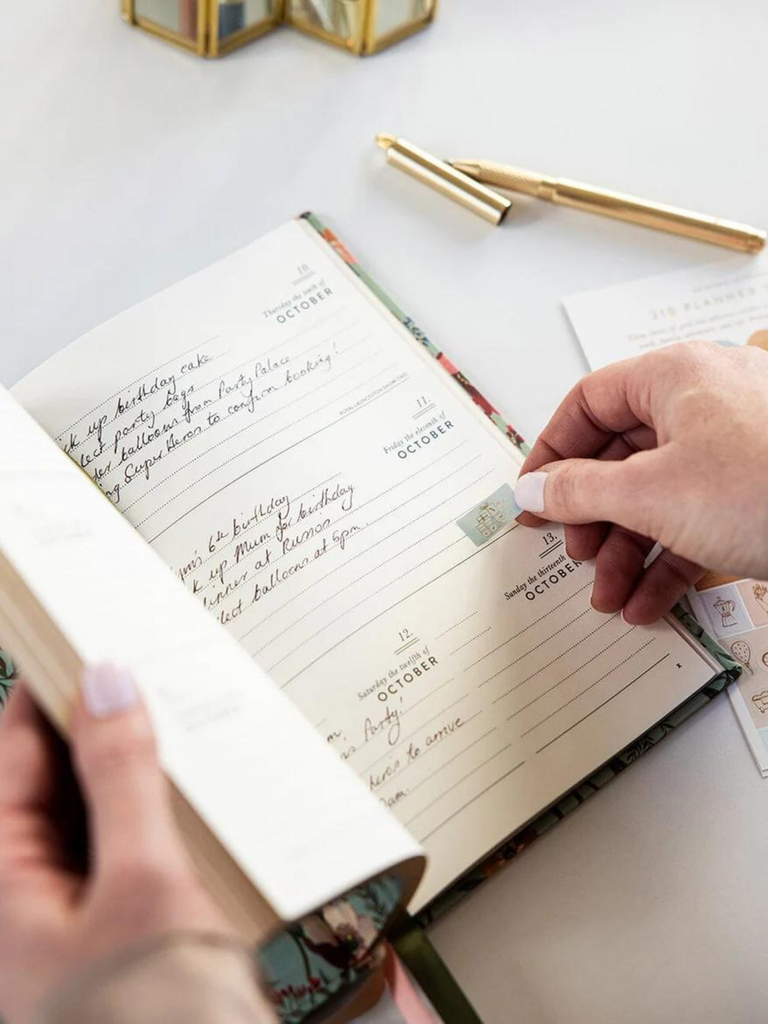 10.
Thursday the tenth of
OCTOBER
up birthday cake
party bags
balloons from Party Palace
Super Heros to confirm booking!
ROYAL LAUNCESTON SHOW (TAS)
11.
Friday the eleventh of
OCTOBER
6th birthday
up Mum for birthday
at Russos
balloons at 5pm.
12.
Saturday the twelfth of
OCTOBER
Party!
to arrive
13.
Sunday the thirteenth
OCTOBER
210 PLANNER